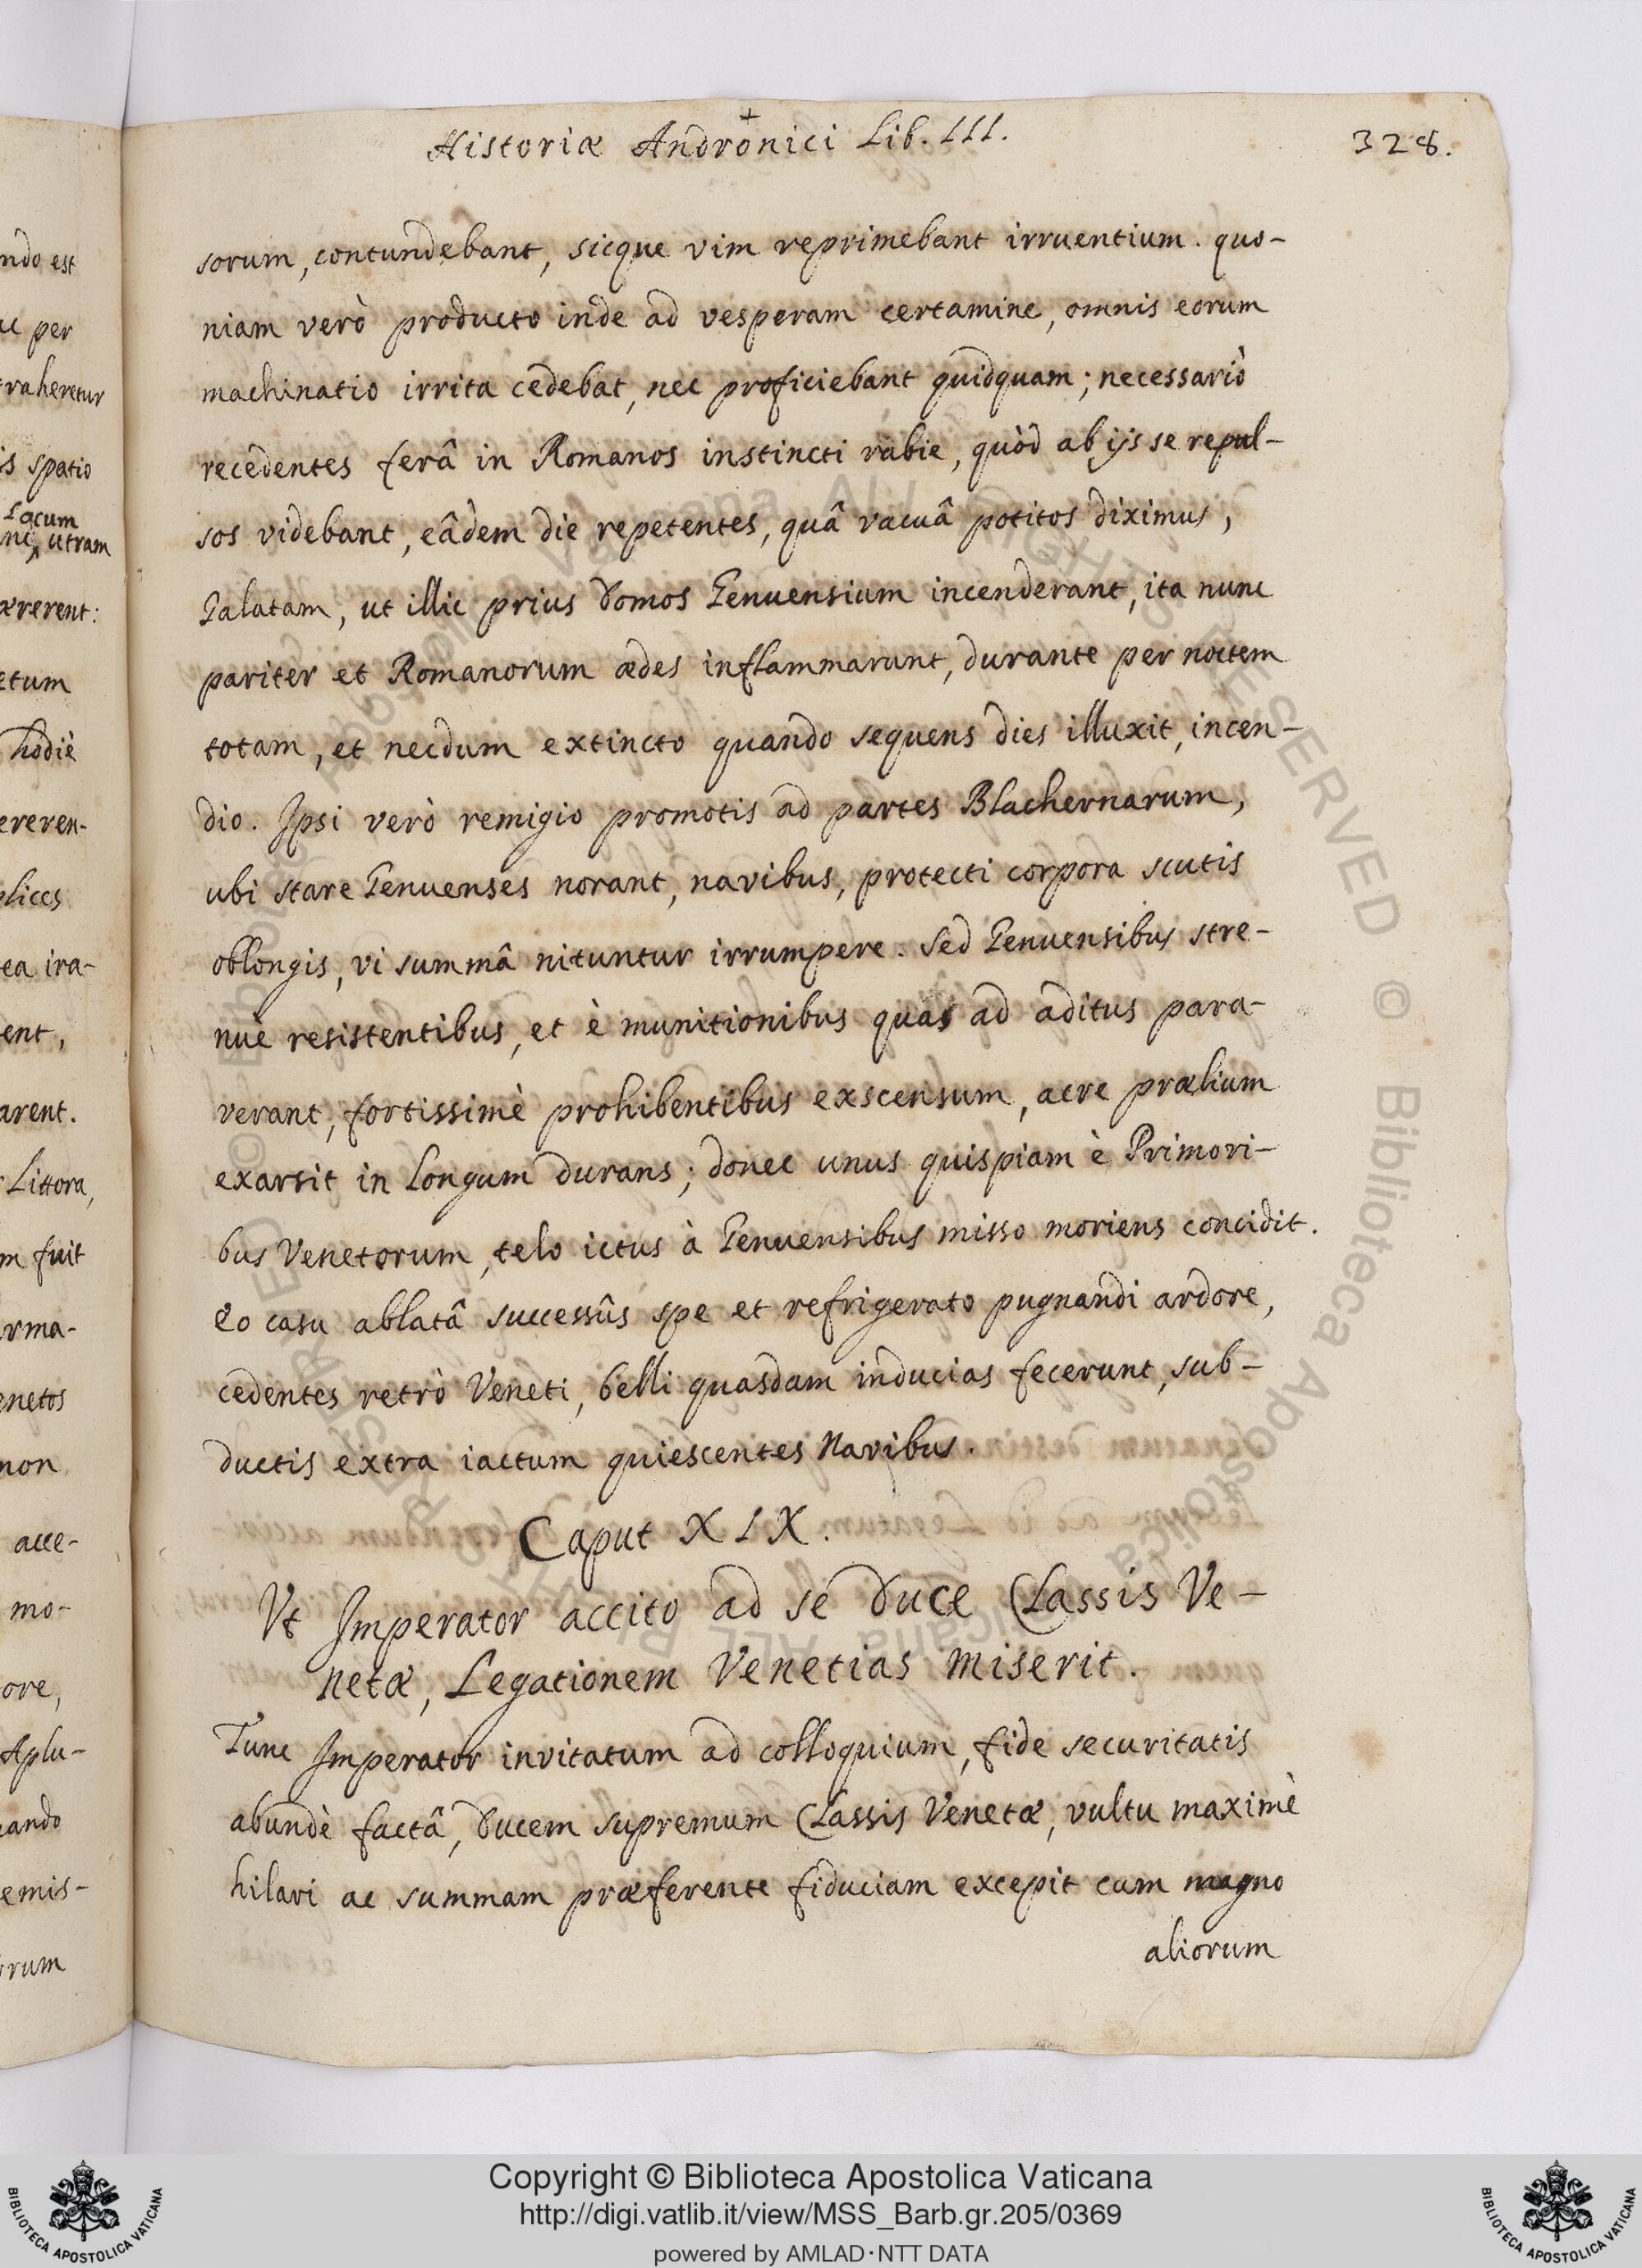 ndo est
ac per
traheretur
is spatio
Locum
utram
ærerent:
etum
hodiè
ereren-
plices
tea ira-
ent,
arent.
Littora,
m fuit
rma-
enetos
non
acce-
mo-
ore,
Aplu-
ando
emis-
orum
Historiæ Andronici Lib. III.
328.
sorum, contundebant, sicque vim reprimebant irruentium. quo-
niam verò producto inde ad vesperam certamine, omnis eorum
machinatio irrita cedebat, nec proficiebant quidquam; necessariò
recedentes ferâ in Romanos instincti rabie, quòd ab ijs se repul-
sos videbant, eâdem die repetentes, quâ vacuâ potitos diximus,
Galatam, ut illic prius domos Genuensium incenderant, ita nunc
pariter et Romanorum ædes inflammarunt, durante per noctem
totam, et necdum extincto quando sequens dies illuxit, incen-
dio. Ipsi verò remigio promotis ad partes Blachernarum,
ubi stare Genuenses norant, navibus, protecti corpora scutis
oblongis, vi summâ nituntur irrumpere. Sed Genuensibus stre-
nuè resistentibus, et è munitionibus quas ad aditus para-
verant, fortissimè prohibentibus exscensum, acre prælium
exarsit in longum durans; donec unus quispiam è Primori-
bus Venetorum, telo ictus à Genuensibus misso moriens concidit.
Eo casu ablatâ successûs spe et refrigerato pugnandi ardore,
cedentes retrò Veneti, belli quasdam inducias fecerunt, sub-
ductis extra iactum quiescentes Navibus.
Caput XIX.
Vt Imperator accito ad se Duce Classis Ve-
netæ, Legationem Venetias miserit.
Tunc Imperator invitatum ad colloquium, fide securitatis
abundè factâ, Ducem supremum Classis Venetæ, vultu maximè
hilari ac summam præferente fiduciam excepit cum magno
aliorum
Copyright © Biblioteca Apostolica Vaticana
http://digi.vatlib.it/view/MSS_Barb.gr.205/0369
powered by AMLAD·NTT DATA
BIBLIOTECA APOSTOLICA VATICANA
BIBLIOTECA APOSTOLICA VATICANA